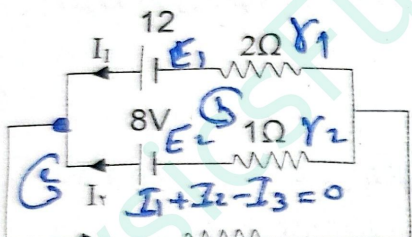 12
I₁ E₁ 2Ω r₁
8V E₂ 1Ω r₂
I₂ I₁+I₂-I₃=0